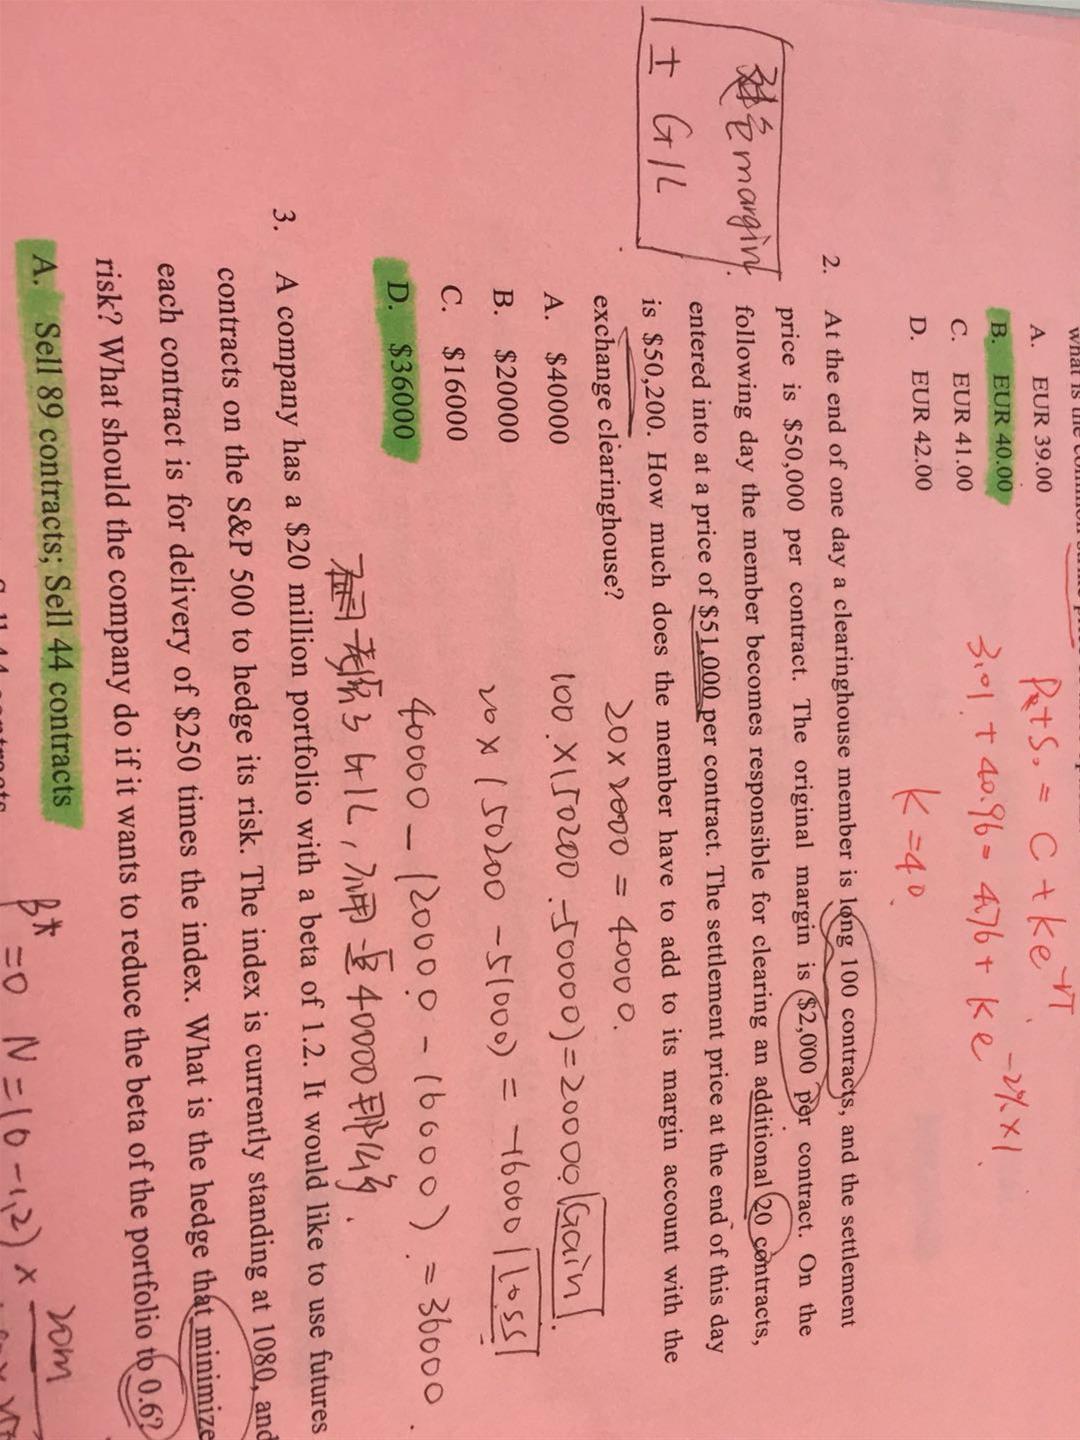 A. EUR 39.00
B. EUR 40.00
C. EUR 41.00
D. EUR 42.00
P₀+S₀ = C + Ke^-rT
3.01 + 40.96 = 4.76 + Ke^-2%×1
K = 40.
2. At the end of one day a clearinghouse member is long 100 contracts, and the settlement
price is $50,000 per contract. The original margin is $2,000 per contract. On the
following day the member becomes responsible for clearing an additional 20 contracts,
entered into at a price of $51,000 per contract. The settlement price at the end of this day
is $50,200. How much does the member have to add to its margin account with the
exchange clearinghouse?
margin
± G/L
A. $40000
B. $20000
C. $16000
D. $36000
20 × 2000 = 40000.
100 × (50200 - 50000) = 20000 Gain.
20 × (50200 - 51000) = -16000 loss
40000 - (20000 - 16000) = 36000.
3. A company has a $20 million portfolio with a beta of 1.2. It would like to use futures
contracts on the S&P 500 to hedge its risk. The index is currently standing at 1080, and
each contract is for delivery of $250 times the index. What is the hedge that minimize
risk? What should the company do if it wants to reduce the beta of the portfolio to 0.6?
A. Sell 89 contracts; Sell 44 contracts
β* = 0 N = (0 - 1.2) × 20m